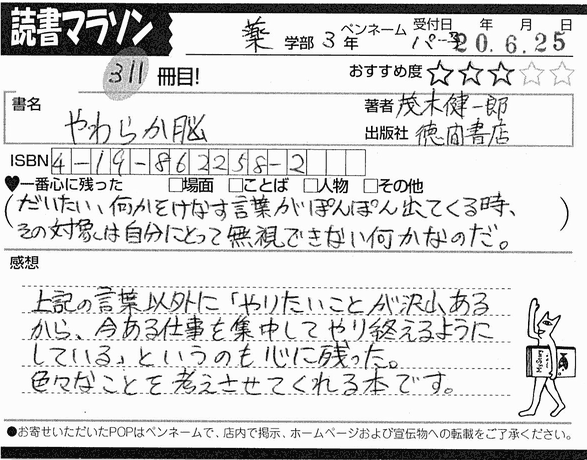 読書マラソン
薬 学部 3年 ペンネーム パー子 受付日 年 月 日
20.6.25
311 冊目!
おすすめ度 ☆☆☆☆☆
書名 やわらか脳
著者 茂木健一郎
出版社 徳間書店
ISBN 4-19-862258-2
♥一番心に残った □場面 □ことば □人物 □その他
(だいたい、何かをけなす言葉がぽんぽん出てくる時、
その対象は自分にとって無視できない何かなのだ。)
感想
上記の言葉以外に「やりたいことが沢山ある
から、今ある仕事を集中してやり終えるように
している」というのも心に残った。
色々なことを考えさせてくれる本です。
●お寄せいただいたPOPはペンネームで、店内で掲示、ホームページおよび宣伝物への転載をご了承ください。